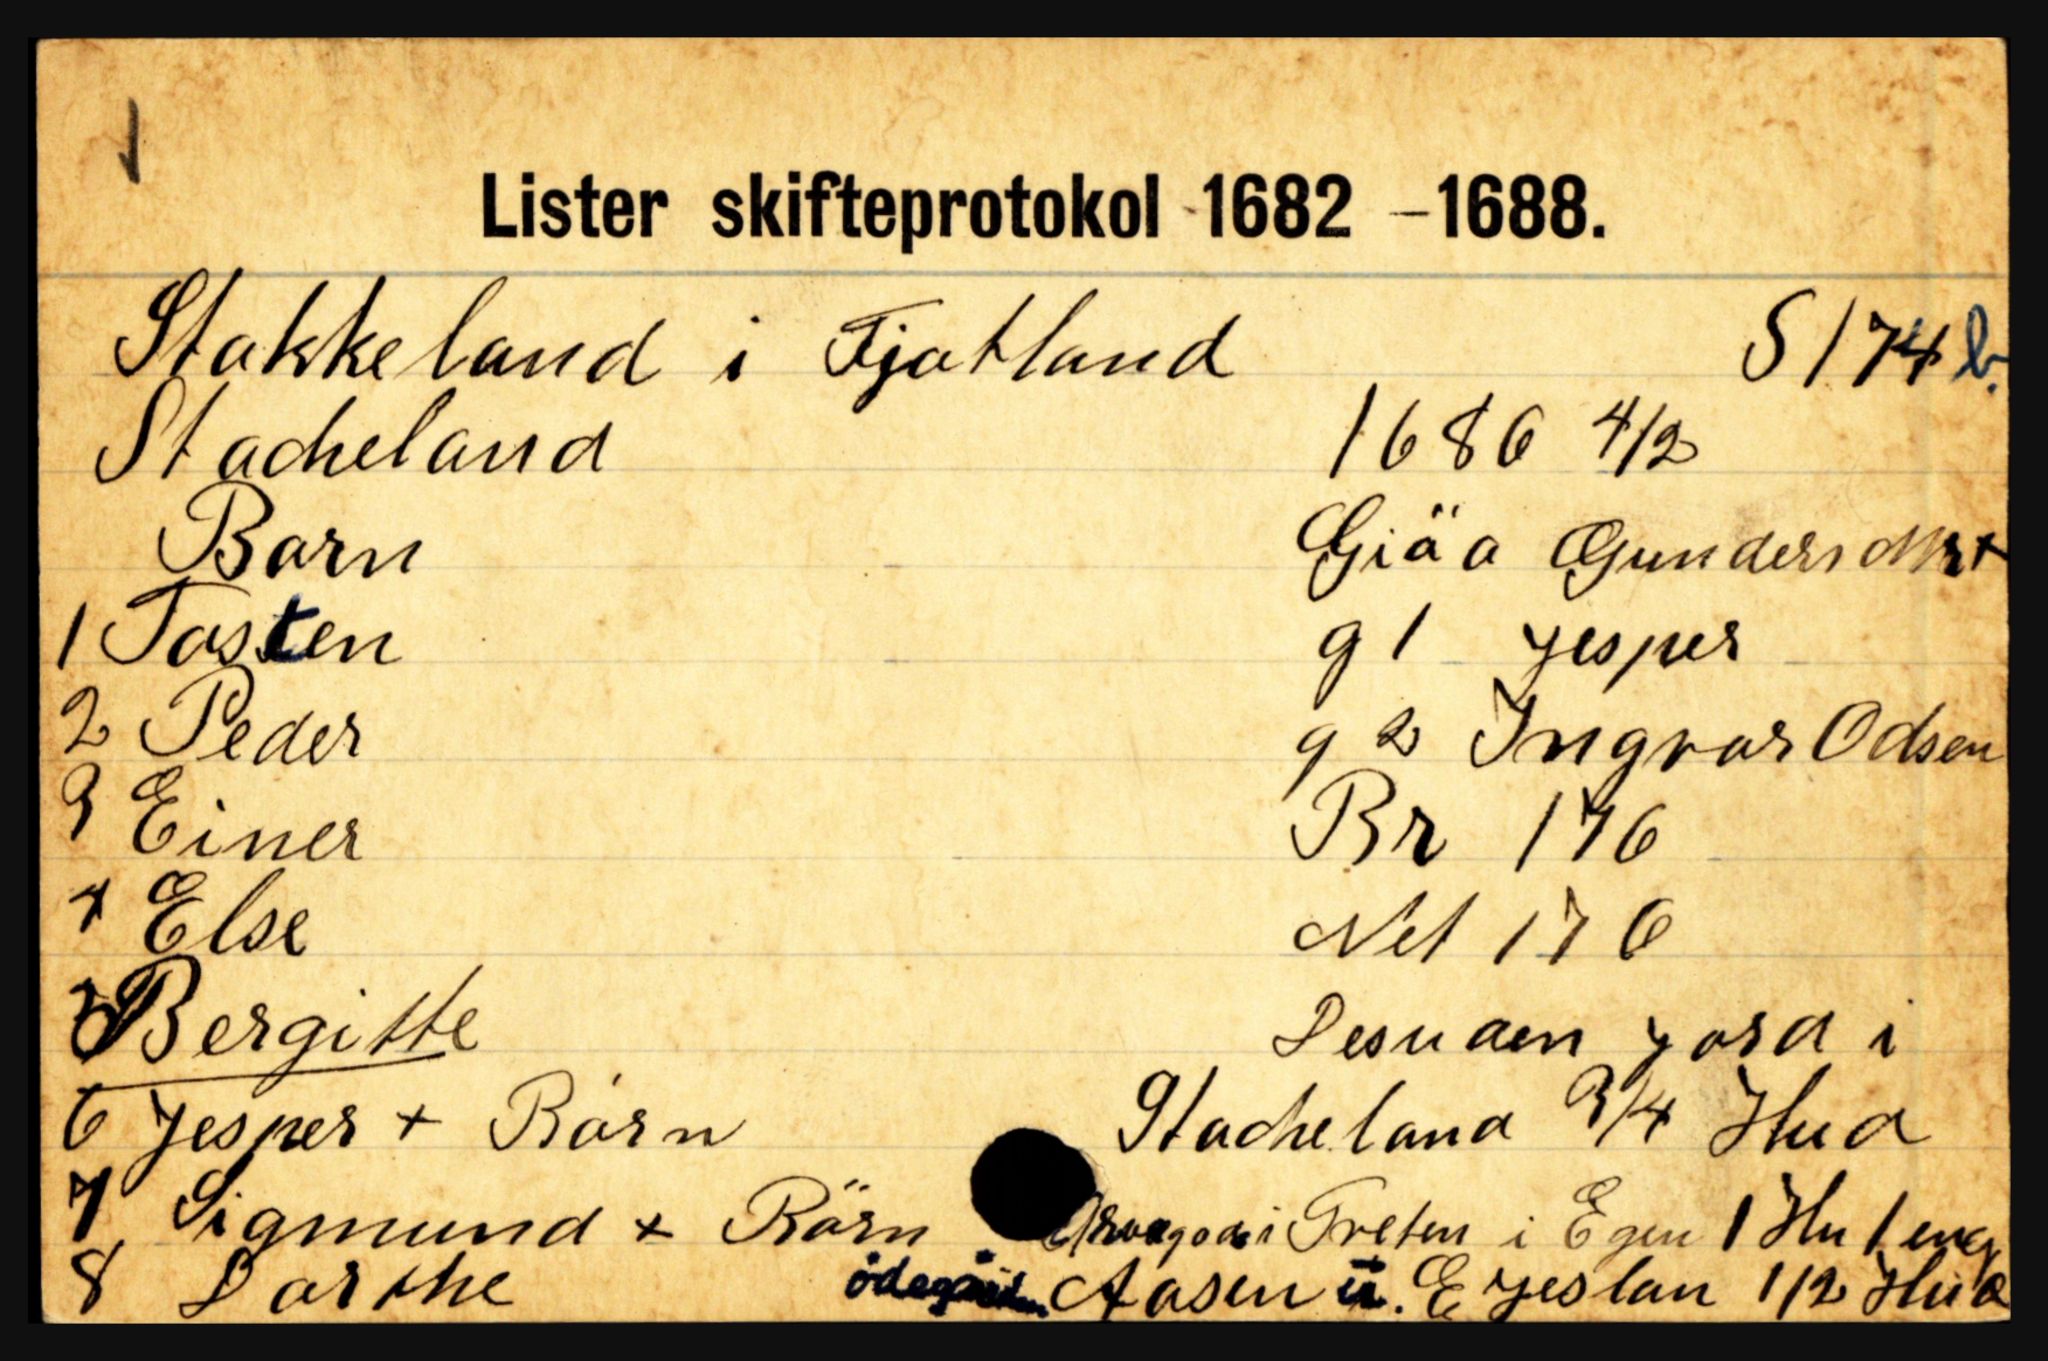 Lister skifteprotokol 1682 – 1688.
Stakkeland i Fjotland S 174 b.
Stacheland 1686 4/2
Barn Giäa Gundersdttr +
1 Tosten g 1 Jesper
2 Peder g 2 Ingvar Odsen
3 Einer Br 176
4 Else Net 176
5 Bergitte Desuden jord i
6 Jesper + Börn Stacheland 3/4 Hud
7 Sigmund + Börn i Treten i Egen 1 Hu 1 eng
8 Dorthe ödegården Aasen u. E Jeslan 1/2 Hud